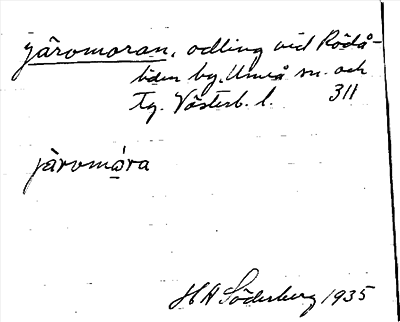 järomoran, odling vid Rödå-
liden by, Umeå sn. och
tg. Västerb. l. 311
järomåra
H A Söderberg 1935